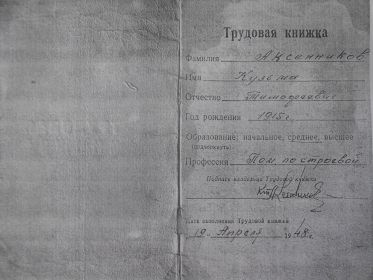 Трудовая книжка
Фамилия
Имя Кузьма
Отчество Тимофеевич
Год рождения 1915 г.
Образование: начальное, среднее, высшее
(подчеркнуть)
Профессия Пом. по строевой
Подпись владельца Трудовой книжки
Дата заполнения Трудовой книжки
19 Апреля 1948 г.